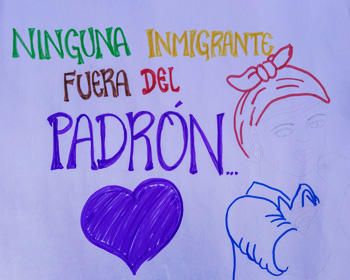 NINGUNA INMIGRANTE
FUERA DEL
PADRÓN...